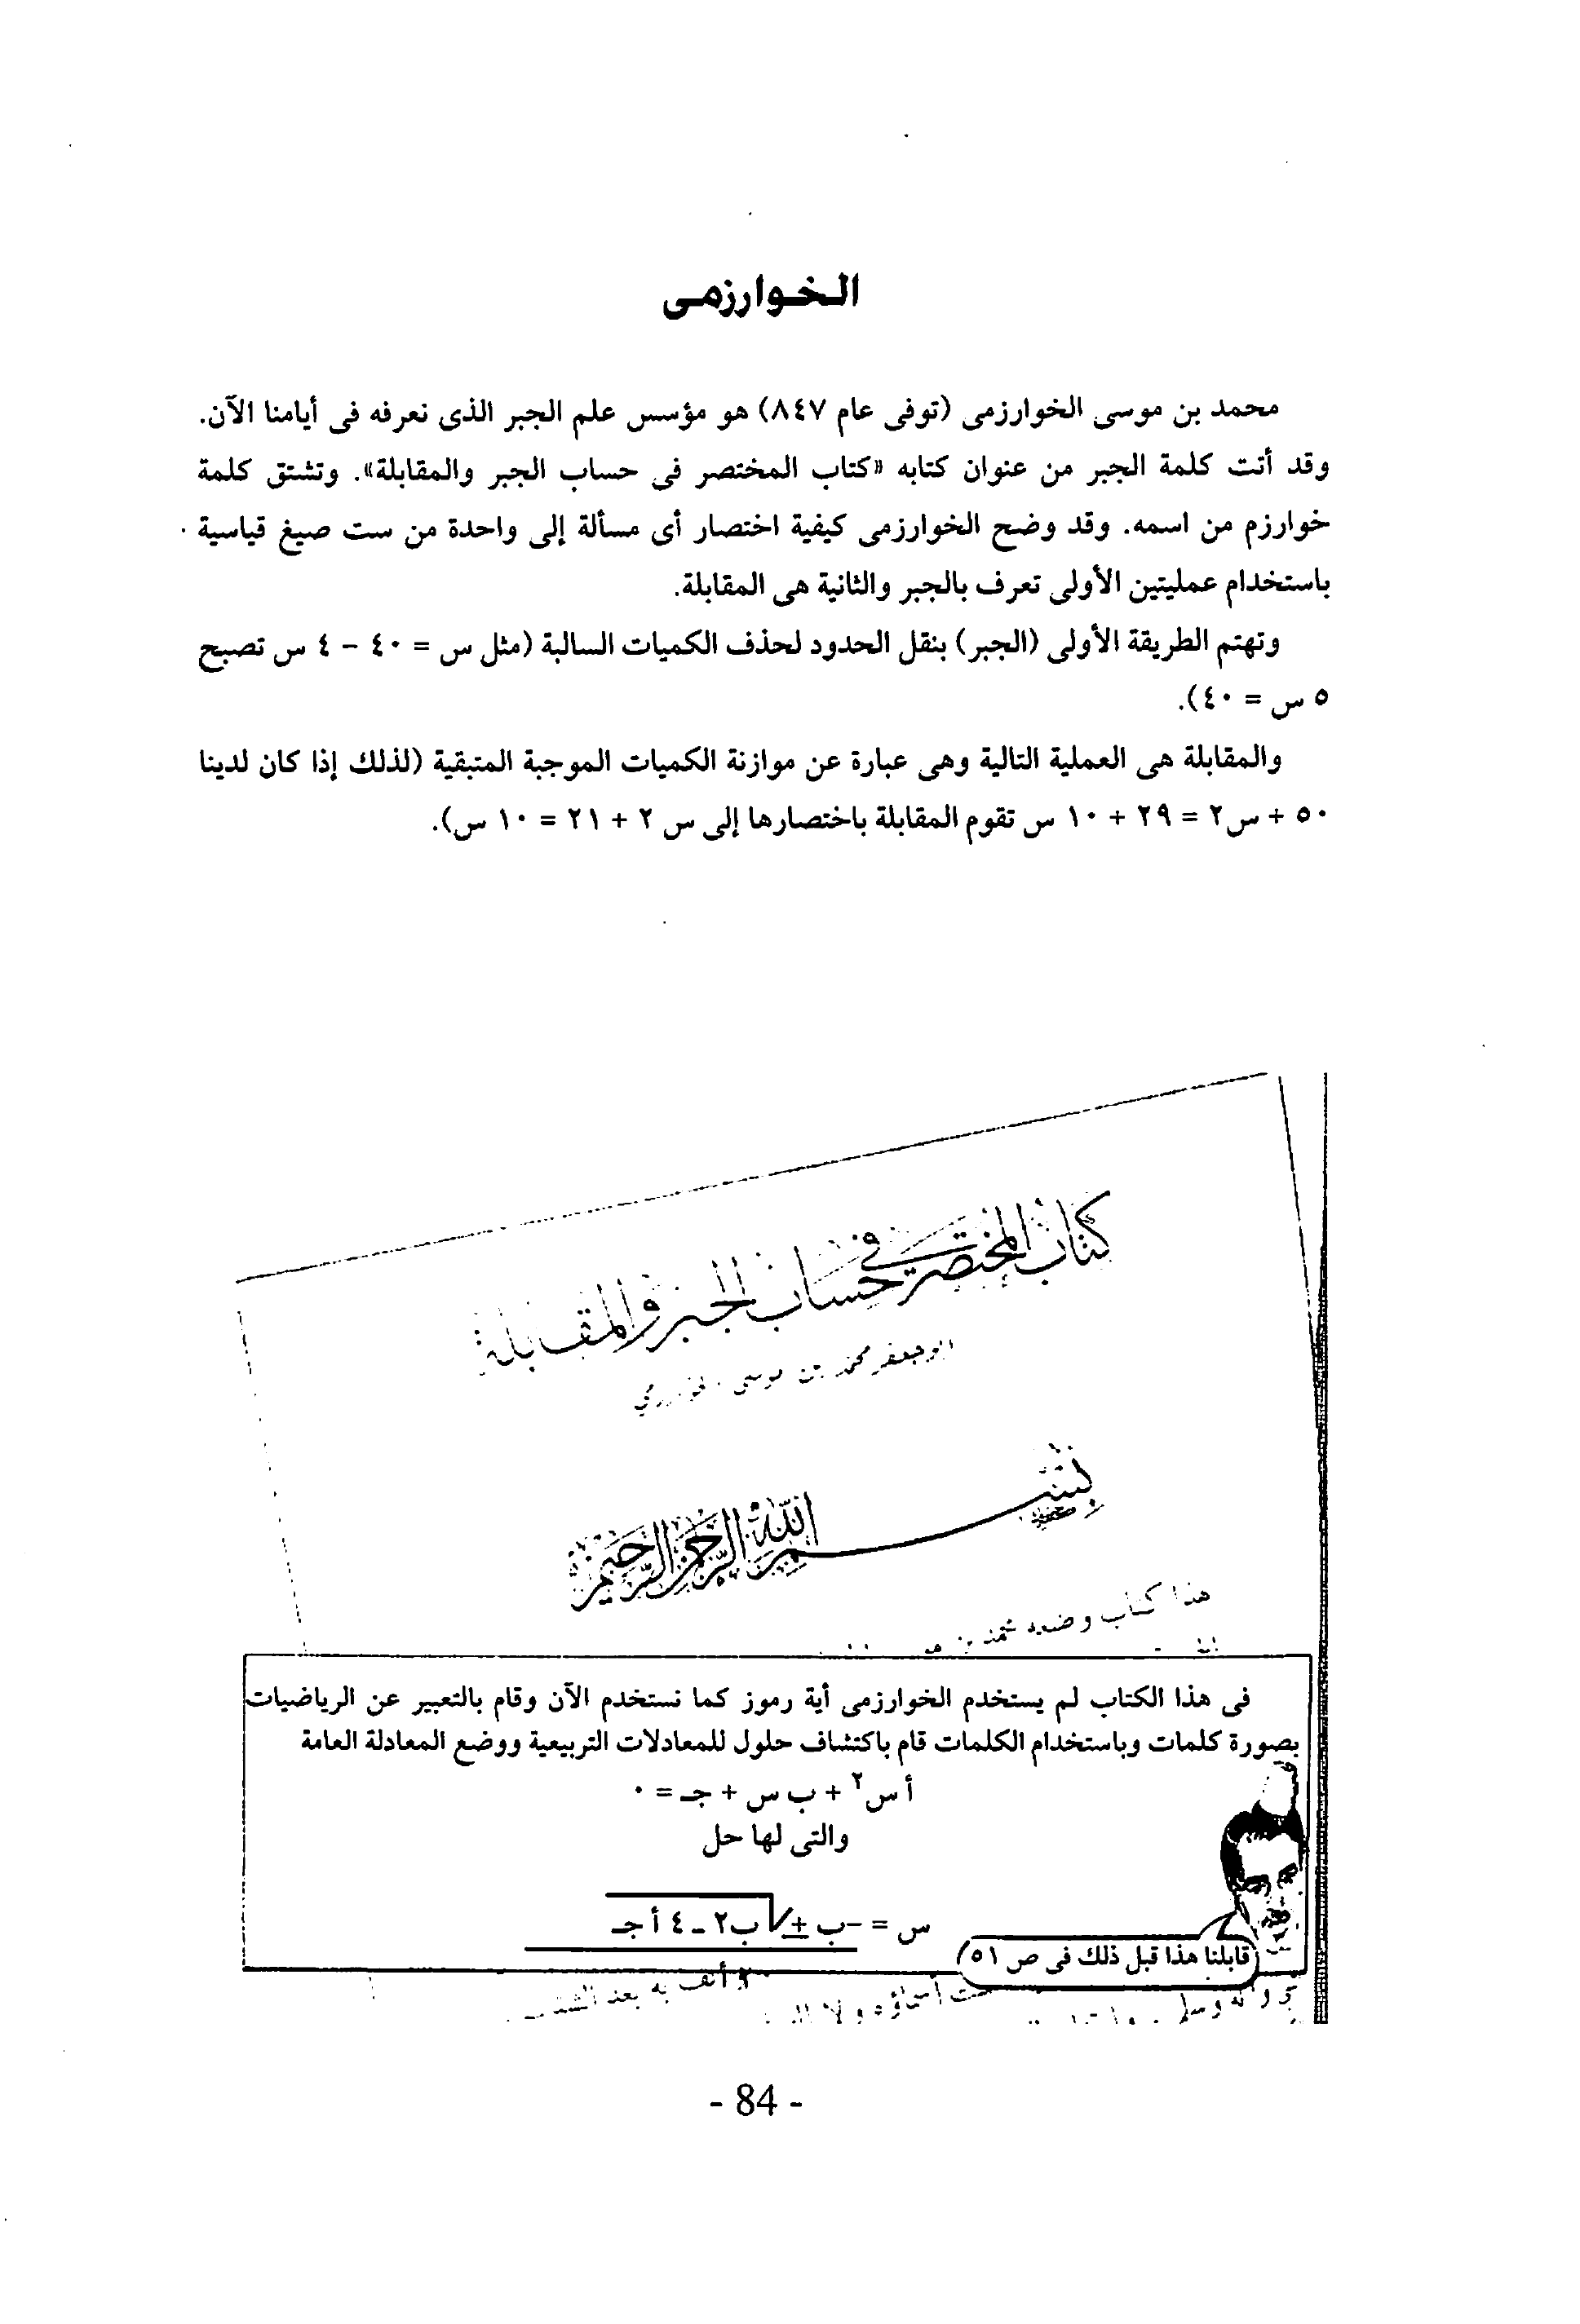 الخوارزمى
محمد بن موسى الخوارزمى (توفى عام ٨٤٧) هو مؤسس علم الجبر الذى نعرفه فى أيامنا الآن.
وقد أتت كلمة الجبر من عنوان كتابه «كتاب المختصر فى حساب الجبر والمقابلة». وتشتق كلمة
خوارزم من اسمه. وقد وضح الخوارزمى كيفية اختصار أى مسألة إلى واحدة من ست صيغ قياسية
باستخدام عمليتين الأولى تعرف بالجبر والثانية هى المقابلة.
وتهتم الطريقة الأولى (الجبر) بنقل الحدود لحذف الكميات السالبة (مثل س = ٤٠ - ٤ س تصبح
٥ س = ٤٠).
والمقابلة هى العملية التالية وهى عبارة عن موازنة الكميات الموجبة المتبقية (لذلك إذا كان لدينا
٥٠ + س٢ = ٢٩ + ١٠ س تقوم المقابلة باختصارها إلى س ٢ + ٢١ = ١٠ س).
كتاب المختصر في حساب الجبر والمقابلة
ابو جعفر محمد بن موسى
بسم الله الرحمن الرحيم
هذا كتاب وضعه محمد بن
فى هذا الكتاب لم يستخدم الخوارزمى أية رموز كما نستخدم الآن وقام بالتعبير عن الرياضيات
بصورة كلمات وباستخدام الكلمات قام باكتشاف حلول للمعادلات التربيعية ووضع المعادلة العامة
أ س٢ + ب س + جـ = ٠
والتى لها حل
س = -ب ± √ب٢ - ٤ أ جـ
٢ أ
قابلنا هذا قبل ذلك فى ص ٥١
- 84 -